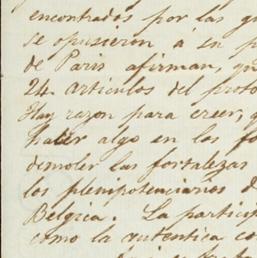 encontrados por las gu
se opusieron á su p
de Paris afirman, qu
24 articulos del proto
Hay razon para creer, q
haber algo en las fo
demoler las fortalezas
los plenipotenciarios d
Belgica. La particip
como la autentica co